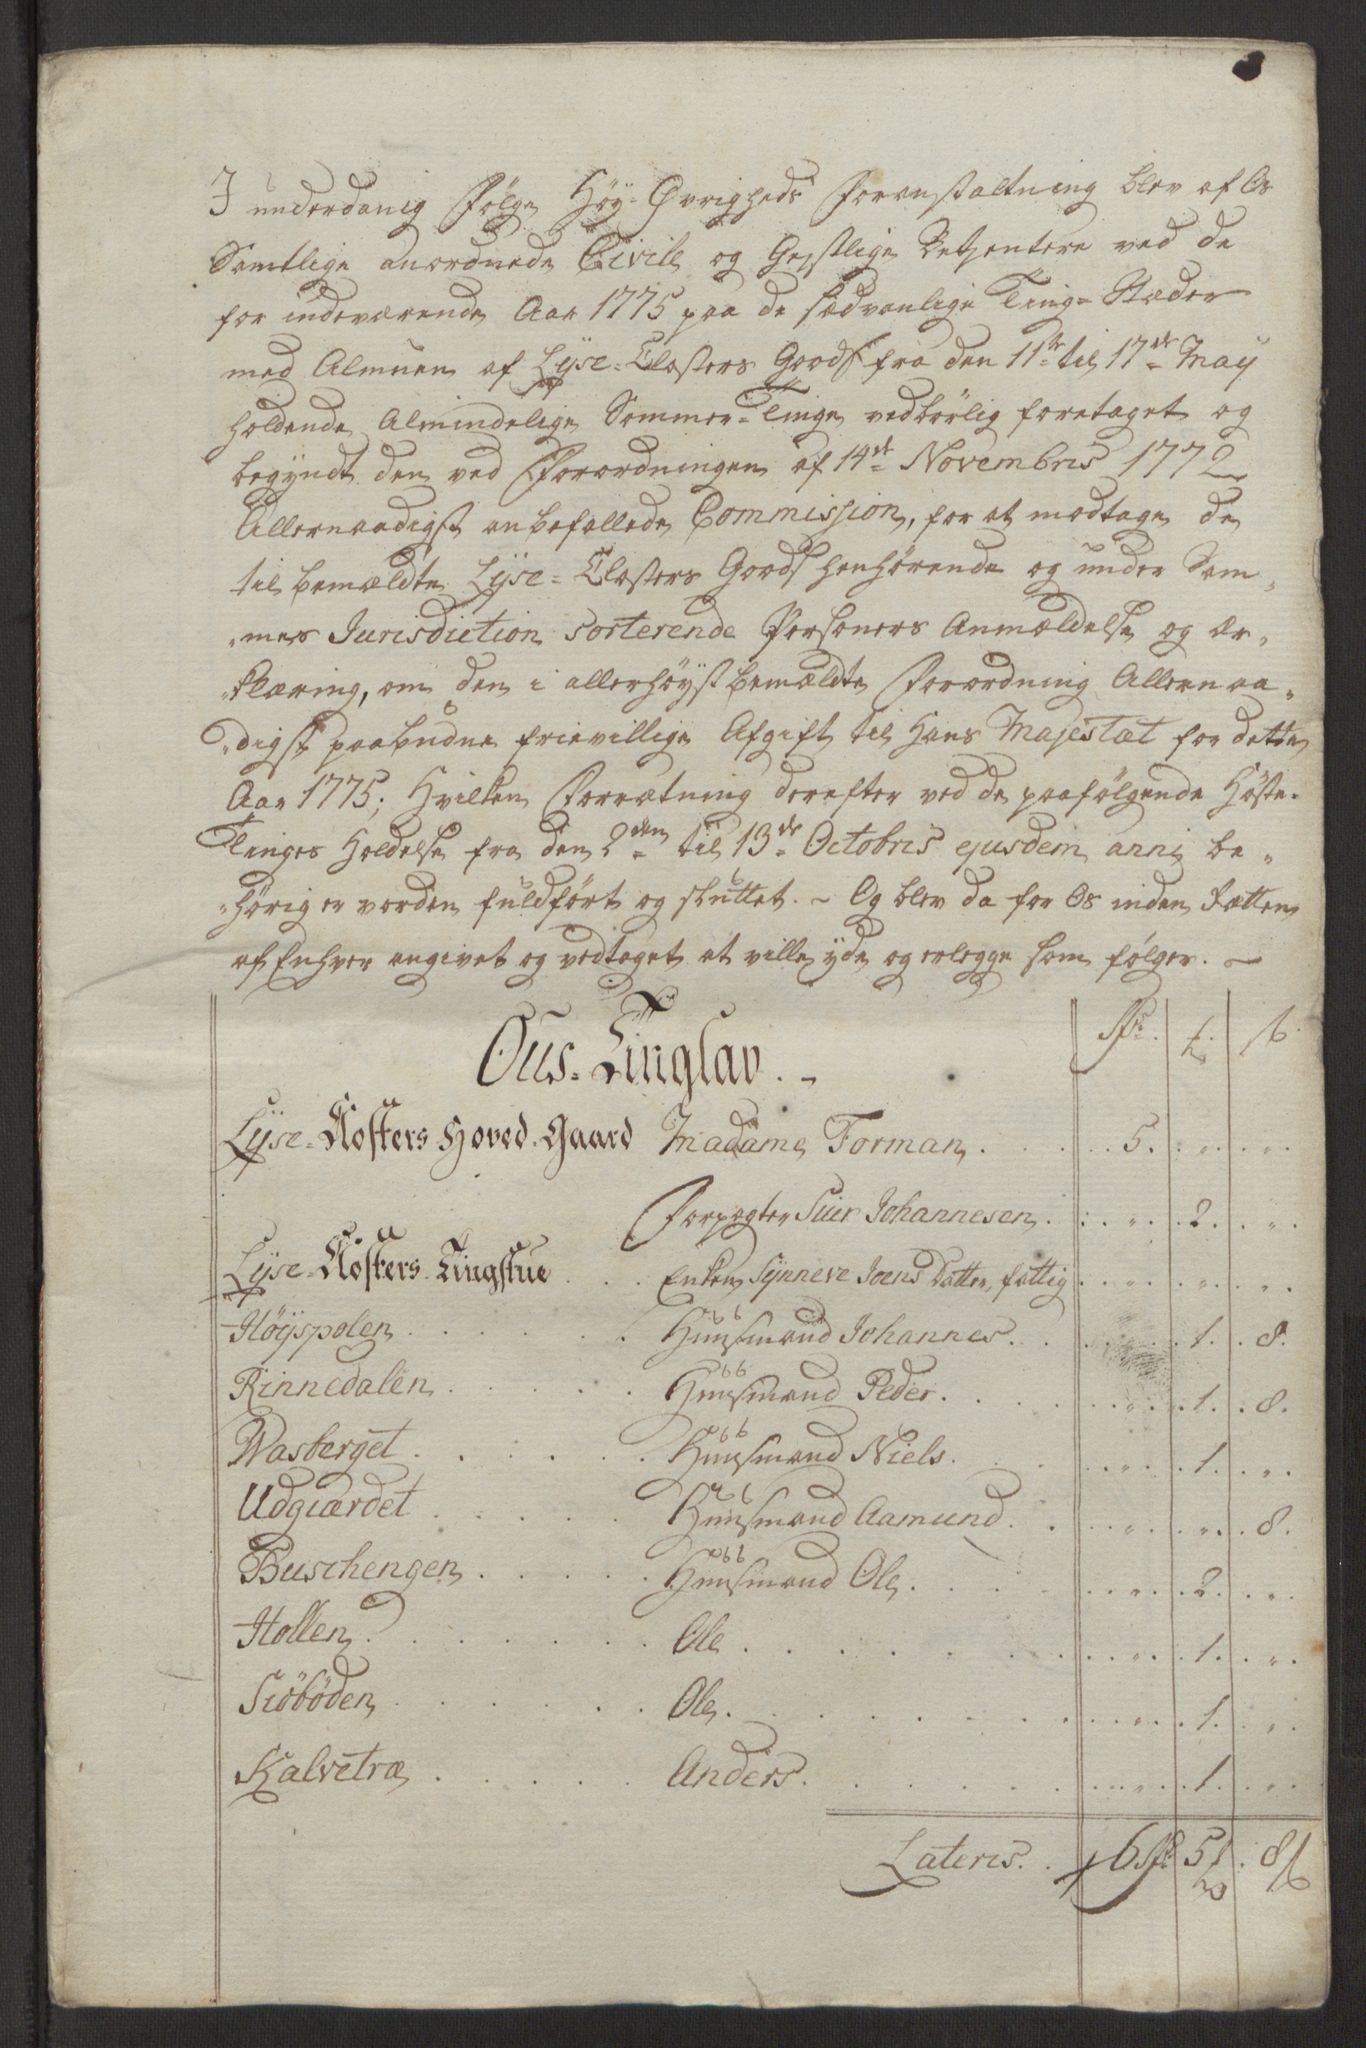 I underdanig Følge Høy-Øvrigheds Foranstaltning blev af Os
Samtlige anordnede Civile og Geistlige Betjentere ved de
for indeværende Aar 1775 paa de sædvanlige Ting-Stæder
med Almuen af Lÿse-Closters Gods fra den 11te til 17de Maÿ
holdende Almindelige Sommer-Tinge vedbørlig foretaget og
begyndt den ved Forordningen af 14de Novembris 1772
Allernaadigst anbefallede Commission, for at modtage de
til bemældte Lÿse-Closters Gods henhørende og under Sam-
-mes Jurisdiction sorterende Personers Anmældelse og Er-
-klæring, om den i allerhøyst bemældte Forordning Allernaa-
-digst paabudne frievillige Afgift til Hans Majestæt for dette
Aar 1775; Hvilken Forretning derefter ved de paafølgende Høste-
Tinges Holdelse fra den 2den til 13de Octobris ejusdem anni be-
-hørig er vorden fuldført og sluttet. ~ Og blev da for Os inden Rætten
af Enhver angivet og vedtaget at ville yde og erlegge som følger. ~
Ous-Tinglav.
Lÿse-Klosters Hoved-Gaard Madame Forman . . 5.
Forpagter Siur Johannesen . . 2.
Lÿse-Klosters Tingstue . . Enken Sÿnneve Joens Datter, fattig
Høÿspolen . . Huusmand Johannes . . 1. 8.
Rinnedalen . . Huusmand Peder . . 1. 8.
Wasberget . . Huusmand Niels . . 1.
Udgiærdet . . Huusmand Aamund . . 8.
Buschengen . . Huusmand Ole . . 2.
Hollen . . Ole . . 1.
Siöböden . . Ole . . 1.
Kalvetræ . . Anders . . 1.
Lateris . . 6 5 8